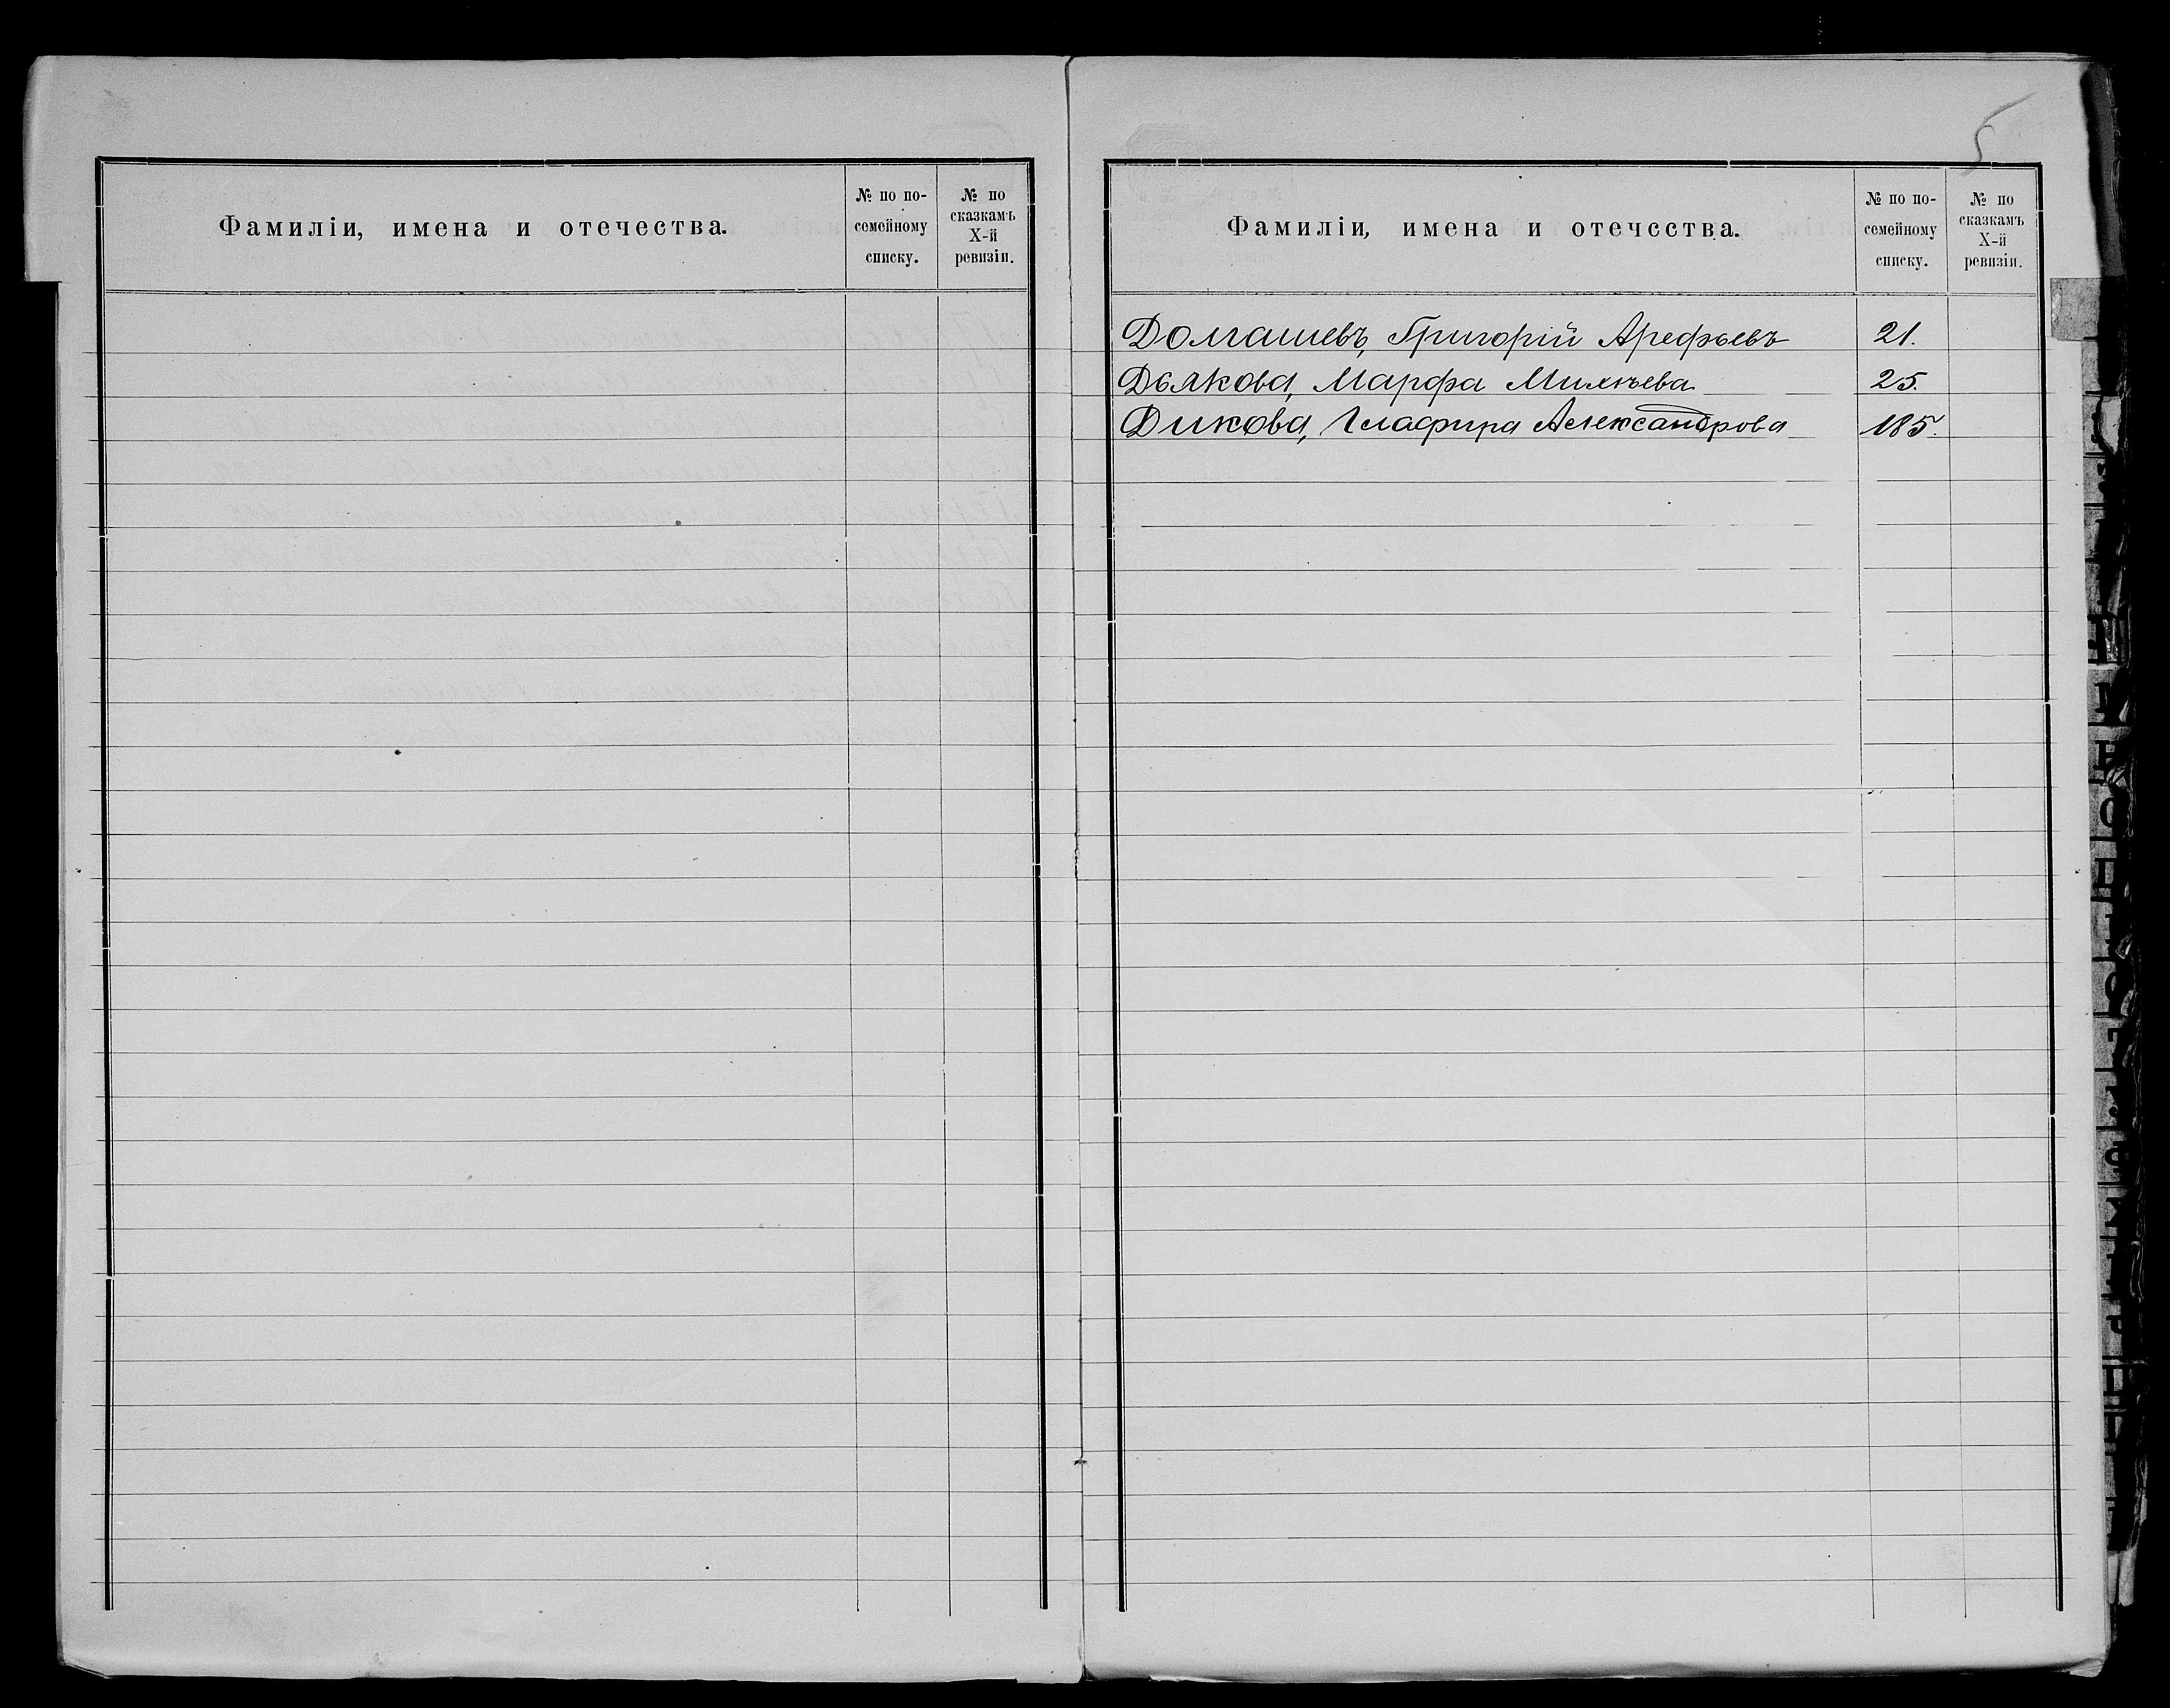 Фамиліи, имена и отечества.
№ по по-
семейному
списку.
№ по
сказкамъ
X-й
ревизіи.
5
Фамиліи, имена и отечества.
№ по по-
семейному
списку.
№ по
сказкамъ
X-й
ревизіи.
Домашевъ, Григорій Арефьевъ 21.
Дьякова, Марфа Михѣева 25.
Дикова, Глафира Александрова 185.